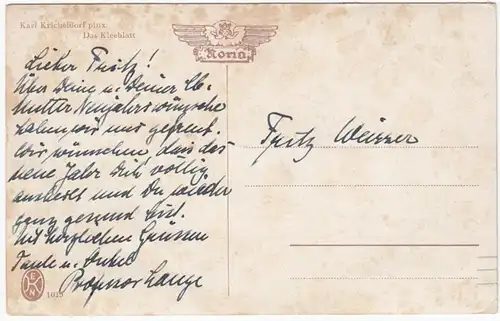 Karl Kricheldorf pinx.
Das Kleeblatt
Rona
Lieber Fritz!
Über Deine u. Deiner
Mutter Neujahrswünsche
haben wir uns gefreut.
Wir wünschen, dass das
neue Jahr Dich völlig
ausheilt und Du wieder
ganz gesund bist.
Mit herzlichen Grüssen
Tante u. Onkel
Professor Lange
Fritz Weisser
1019